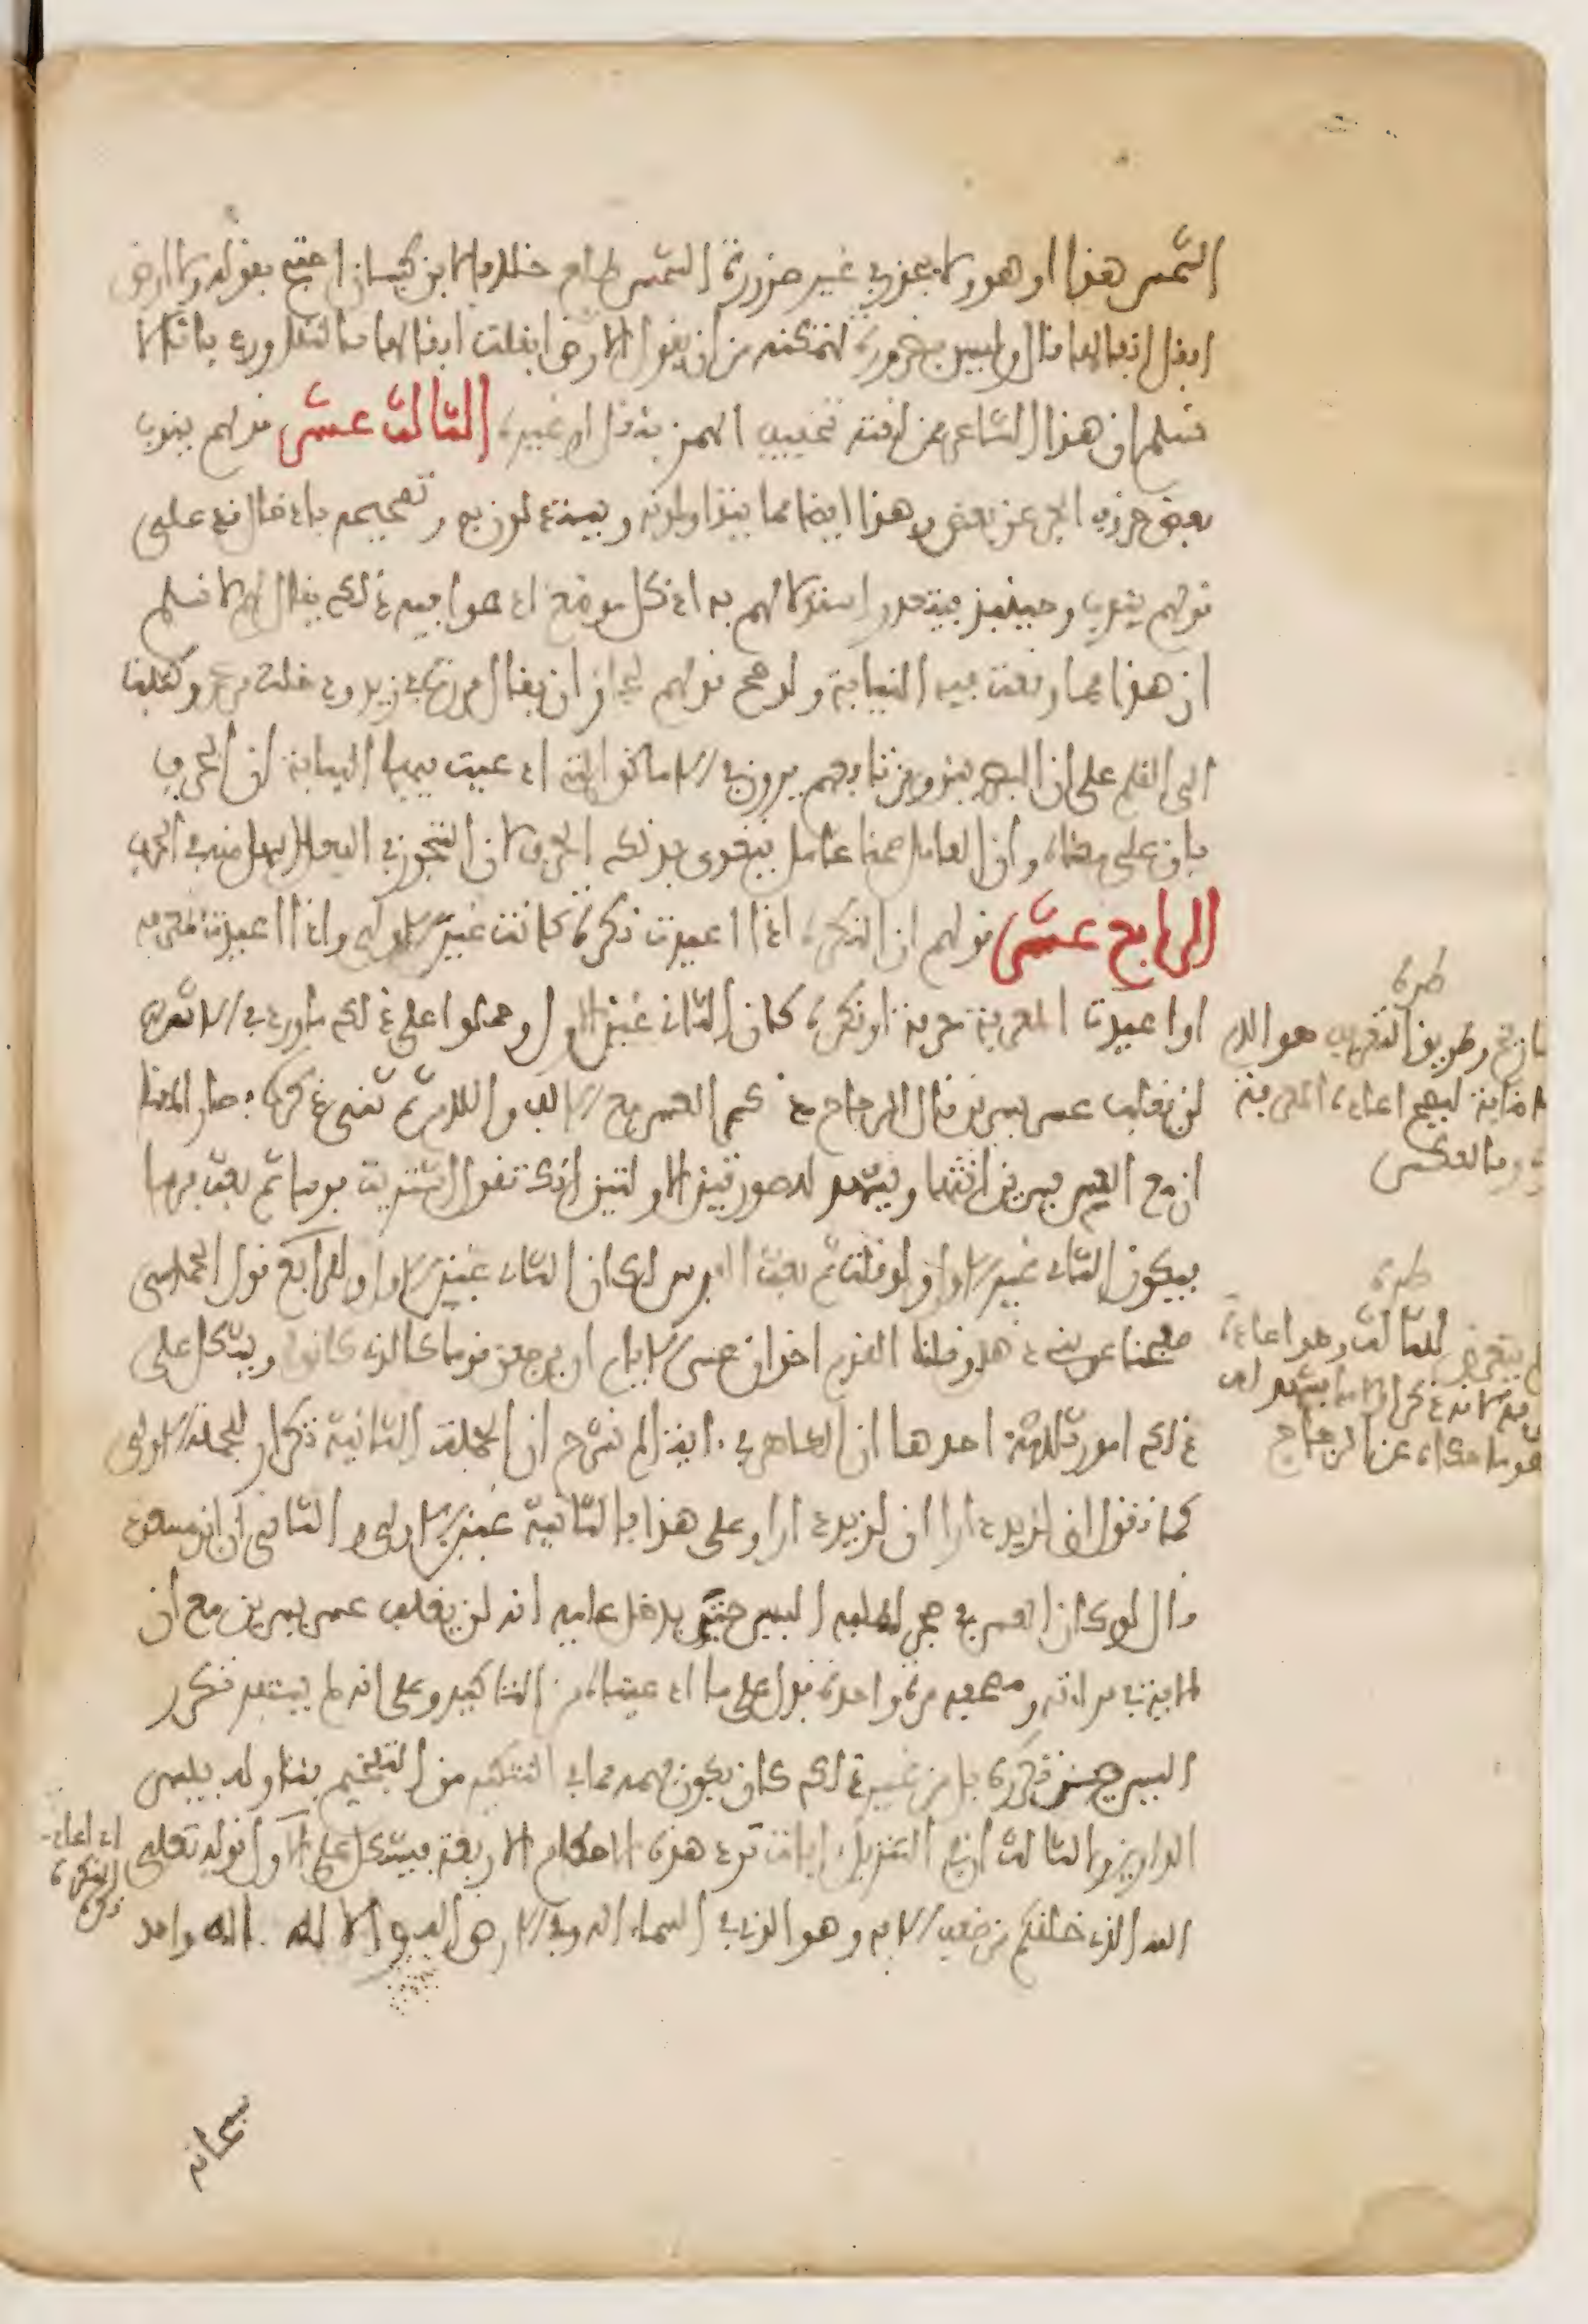 الشمس هذا او هو ولا يجوز في غير ضرورة الشمس طالع خلافا لابن كيسان احتج بقوله ولا ارض
ابقل ابقالها قال وليس بضرورة لتمكنه من ان يقول الارض ابقلت ابقالها بالنقل ورد بانا لا
نسلم ان هذا الشاعر ممن لغته تخفيف الهمز بنقل او غيره الثالث عشر قولهم ينوب
بعض حروف الجر عن بعض وهذا ايضا مما يتداولونه ويستدلون به وتصحيحه بادخال قد على
قولهم ينوب وحينئذ فيتعذر استدلالهم به اذ كل موضع ادعوا فيه ذلك يقال لهم لا نسلم
ان هذا مما وقعت فيه النيابة ولو صح قولهم لجاز ان يقال مررت في زيد ودخلت من عمرو وكتبت
الى القلم على ان البصريين ومن تابعهم يرون في الاماكن التي ادعيت فيها النيابة ان الحرف
باق على معناه وان العامل ضمن عامل يتعدى بذلك الحرف لان التجوز في الفعل اسهل منه في الحرف
الرابع عشر قولهم ان النكرة اذا اعيدت نكرة كانت غير الاولى واذا اعيدت معرفة
او اعيدت المعرفة معرفة او نكرة كان الثاني غير الاول وحملوا على ذلك ما ورد في الاثر
لن يغلب عسر يسرين قال الزجاج ذكر العسر مع الالف واللام ثم ثنى ذكره فصار المعنى
ان مع العسر يسرين انتهى ويشهد للصورتين الاوليين انك تقول اشتريت فرسا ثم بعت فرسا
فيكون الثاني غير الاول ولو قلت ثم بعت الفرس لكان الثاني غير الاول وللرابع قول الحماسي
صفحنا عن بني ذهل وقلنا القوم اخوان عسى الايام ان يرجعن قوما كالذي كانوا ويشكل على
ذلك امور ثلاثة احدها ان الظاهر في اية الم نشرح ان الجملة الثانية تكرار للجملة الاولى
كما تقول ان لزيد دارا ان لزيد دارا وعلى هذا فالثانية غير الاولى والثاني ان ابن مسعود
قال لو كان العسر في جحر لطلبه اليسر حتى يدخل عليه انه لن يغلب عسر يسرين مع ان
الاية في قراءته ومصحفه مرة واحدة فدل على ما ادعيناه من التاكيد وعلى انه لم يستفد تكرر
اليسر من تكرره بل من غير ذلك كان يكون فهمه مما في التنكير من التفخيم فتاوله بيسر
الدارين والثالث ان في التنزيل ايات ترد هذه الاحكام الاربعة فيشكل على الاول قوله تعالى
الله الذي خلقكم من ضعف الاية وهو الذي في السماء اله وفي الارض اله والاله اله واحد
سبحانه
طرة
وطريق التعريف هو الال
ضافية ليصح اعادة المعرفة
وبالعكس
طرة
يتعرض للثالث وهو اعادة
لانه ذكر اولا ما يشهد له
هو ما حكاه عن الزجاج
اذا اعاد
النكرة
نكرة